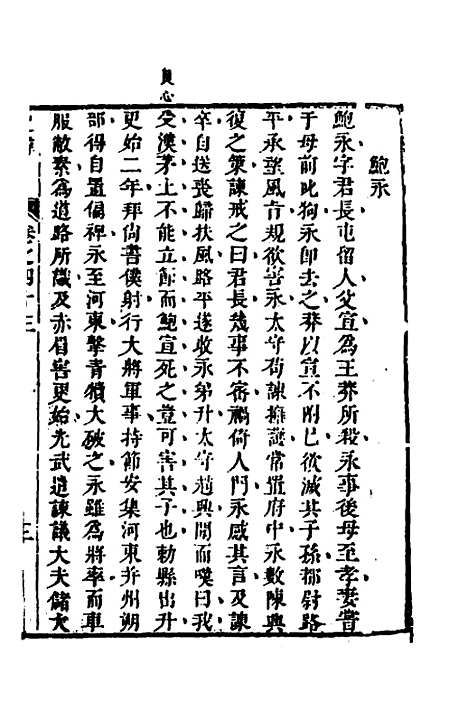 鮑永
鮑永字君長屯留人父宣為王莽所殺永事後母至孝妻嘗
于母前叱狗永即去之莽以宣不附已欲滅其子孫都尉路
平承望風旨規欲害永太守苟諫擁護常置府中永數陳興
復之策諫戒之曰君長幾事不密禍倚人門永感其言及諫
卒自送喪歸扶風路平遂收永弟升太守趙興聞而嘆曰我
受漢茅土不能立節而鮑宣死之豈可害其子也勅縣出升
更始二年拜尚書僕射行大將軍事持節安集河東并州朔
部得自置偏裨永至河東擊青犢大破之永雖為將率而車
服敝素為道路所識及赤眉害更始光武遣諫議大夫儲大
良心
卷之四十三